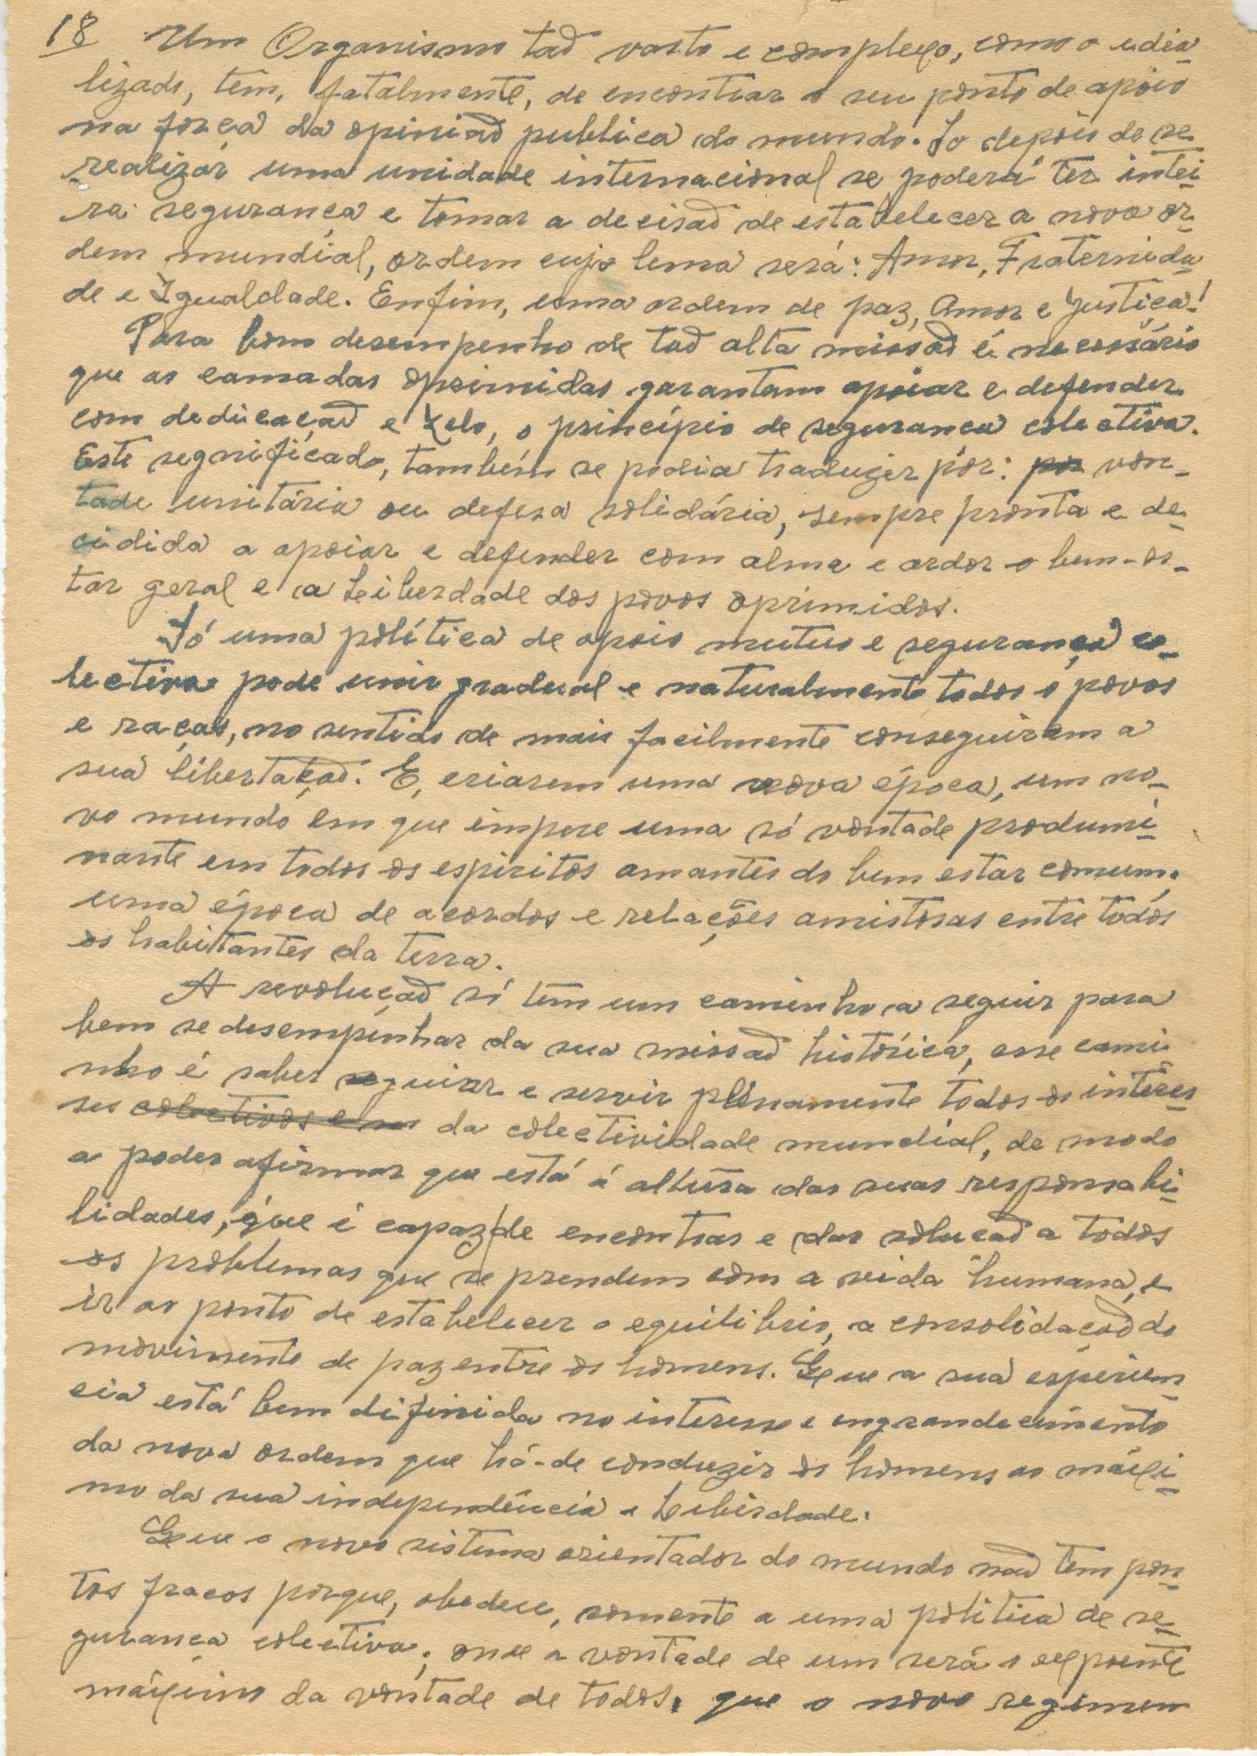 18 Um Organismo tão vasto e complexo, como o idia-
lizado, tem, fatalmente, de encontrar o seu ponto de apoio
na força da opinião publica do mundo. Só depois de se
realizar uma unidade internacional se poderá ter intei-
ra segurança e tomar a decisão de estabelecer a nova or-
dem mundial, ordem cujo lema será: Amor, Fraternida-
de e Igualdade. Enfim, uma ordem de paz, Amor e Justiça!
Para bom desempenho de tão alta missão é necessário
que as camadas oprimidas garantam apoiar e defender
com dedicação e zelo, o princípio de segurança colectiva.
Este segnificado, também se podia traduzir pór: por von-
tade unitária ou defesa solidária, sempre pronta e de-
cidida a apoiar e defender com alma e ardor o bem-es-
tar geral e a Leiberdade dos povos oprimidos.
Só uma política de apoio mutuo e segurança co-
lectiva pode unir gradual e naturalmente todos o povos
e raças, no sentido de mais facilmente conseguirem a
sua libertação. E, criarem uma nova época, um no-
vo mundo em que impere uma só vontade produmi-
nante em todos os espiritos amantes do bem estar comum;
uma época de acordos e relações amistosas entre todos
os habitantes da terra.
A revolução só tem um caminho a seguir para
bem se desempenhar da sua missão histórica, esse cami-
nho é saber seguir e servir plenamente todos os intêres-
ses colectivos e da colectividade mundial, de modo
a poder afirmar que está á altura das suas responsabi-
lidades, que é capaz de encontrar e dar solução a todos
os problemas que se prendem com a vida humana, e
ir ao ponto de estabelecer o equilibrio, a consolidação do
movimento de paz entre os homens. Que a sua esperien-
cia está bem difinida no interesse e engrandecimento
da nova ordem que há-de conduzir os homens ao máxi-
mo da sua independência e Leberdade.
Que o novo sistema orientador do mundo não tem pon-
tos fracos porque, obedece, somente a uma politica de se-
gurança colectiva; onde a vontade de um será o expoente
máximo da vontade de todos. que o novo regimem